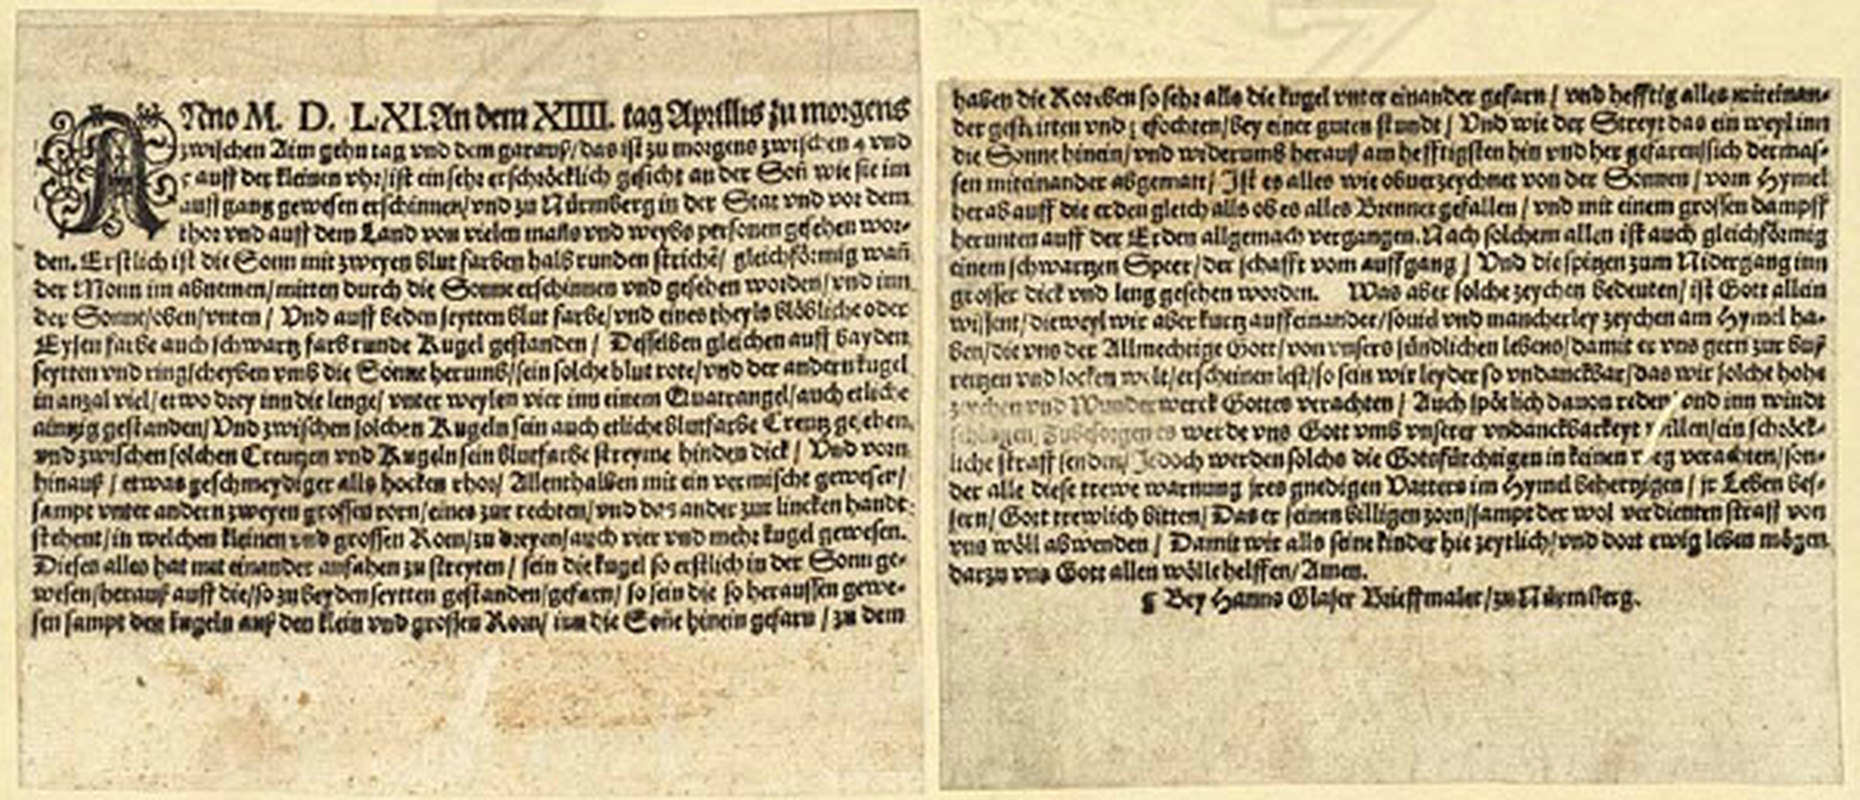 ANno M. D. LXI. An dem XIIII. tag Aprillis zu morgens
zwischen
auff der kleinen vhr/ist ein sehr erschröcklich gesicht an der Soñ wie sie im
auffgang gewesen erschinnen/vnd zu Nürmberg in der Stat vnd vor dem
thor vnd auff dem Land von vielen mañs vnd weybs personen gesehen wor-
den. Erstlich ist die Sonn mit zweyen blut farben halb runden strichē/ gleichförmig wañ
der Monn im abnemen/mitten durch die Sonne erschinnen vnd gesehen worden/vnd inn
der Sonne/oben/vnten / Vnd auff beden seytten blut farbe/vnd eines theyls blöbliche oder
Eysen farbe auch schwartz farb runde Kugel gestanden / Desselben gleichen auff bayden
seytten vnd ringscheyben vmb die Sonne herumb/sein solche blut rote/vnd der andern kugel
in anzal viel/etwo drey inn die lenge/ vnter weylen vier inn einem Quatrangel/auch etliche
ainzig gestanden/Vnd zwischen solchen Kugeln sein auch etliche blutfarbe Creutz gesehen,
vnd zwischen solchen Creutzen vnd Kugeln sein blutfarbe streyme hinden dick / Vnd vorn
hinauß / etwas geschmeydiger alls hocken rhor/ Allenthalben mit ein vermische
sampt vnter andern zweyen grossen rorn/eines zur rechten/vnd das ander zur lincken handt
stehent/in welchen kleinen vnd grossen Rorn/zu dreyen/auch vier vnd mehr kugel gewesen.
Dieses alles hat mit einander anfahen zu streyten / sein die kugel so erstlich in der Sonn ge-
wesen/herauß auff die/so zu beyden seytten gestanden/gefarn/ so sein die so heraussen gewe-
sen sampt den kugeln auß den klein vnd grossen Rorn/ inn die Soñe hinein gefarn / zu dem
haben die Roren so sehr alls die kugel vnter einander gefarn / vnd hefftig alles miteinan-
der gestritten vnd gefochten/bey einer guten stundt / Vnd wie der Streyt das ein weyl inn
die Sonne hinein/vnd widerumb herauß am hefftigsten hin vnd her gefaren/sich dermas-
sen miteinander abgematt/ Ist es alles wie obuerzeychnet von der Sonnen / vom Hymel
herab auff die erden gleich alls ob es alles Brennet gefallen / vnd mit einem grossen dampff
herunten auff der Erden allgemach vergangen. Nach solchem allen ist auch gleichförmig
einem schwartzen Speer/der schafft vom auffgang / Vnd die spitzen zum Nidergang inn
grosser dick vnd leng gesehen worden. Was aber solche zeychen bedeuten/ ist Gott allein
wissent/dieweyl wir aber kurtz auffeinander/souil vnd mancherley zeychen am Hymel ha-
ben/die vns der Allmechtige Gott/von vnsers sündlichen lebens/damit er vns gern zur buß
reitzen vnd locken wolt/erscheinen lest/so sein wir leyder so vndanckbar/das wir solche hohe
zeychen vnd Wunderwerck Gottes verachten / Auch spötlich dauon reden/vnd inn windt
schlagen, Zubesorgen es werde vns Gott vmb vnserer vndanckbarkeyt willen/ein schröck-
liche straff senden/ Jedoch werden solchs die Gotsfürchtigen in keinen weg verachten/son-
der alle diese trewe warnung jres gnedigen Vatters im Hymel behertzigen / jr Leben bes-
sern/ Gott trewlich bitten/ Das er seinen billigen zorn/sampt der wol verdienten straff von
vns wöll abwenden / Damit wir alls seine kinder hie zeytlich/vnd dort ewig leben mögen
darzu vns Gott allen wölle helffen/Amen.
Bey Hanns Glaser Brieffmaler/zu Nürmberg.